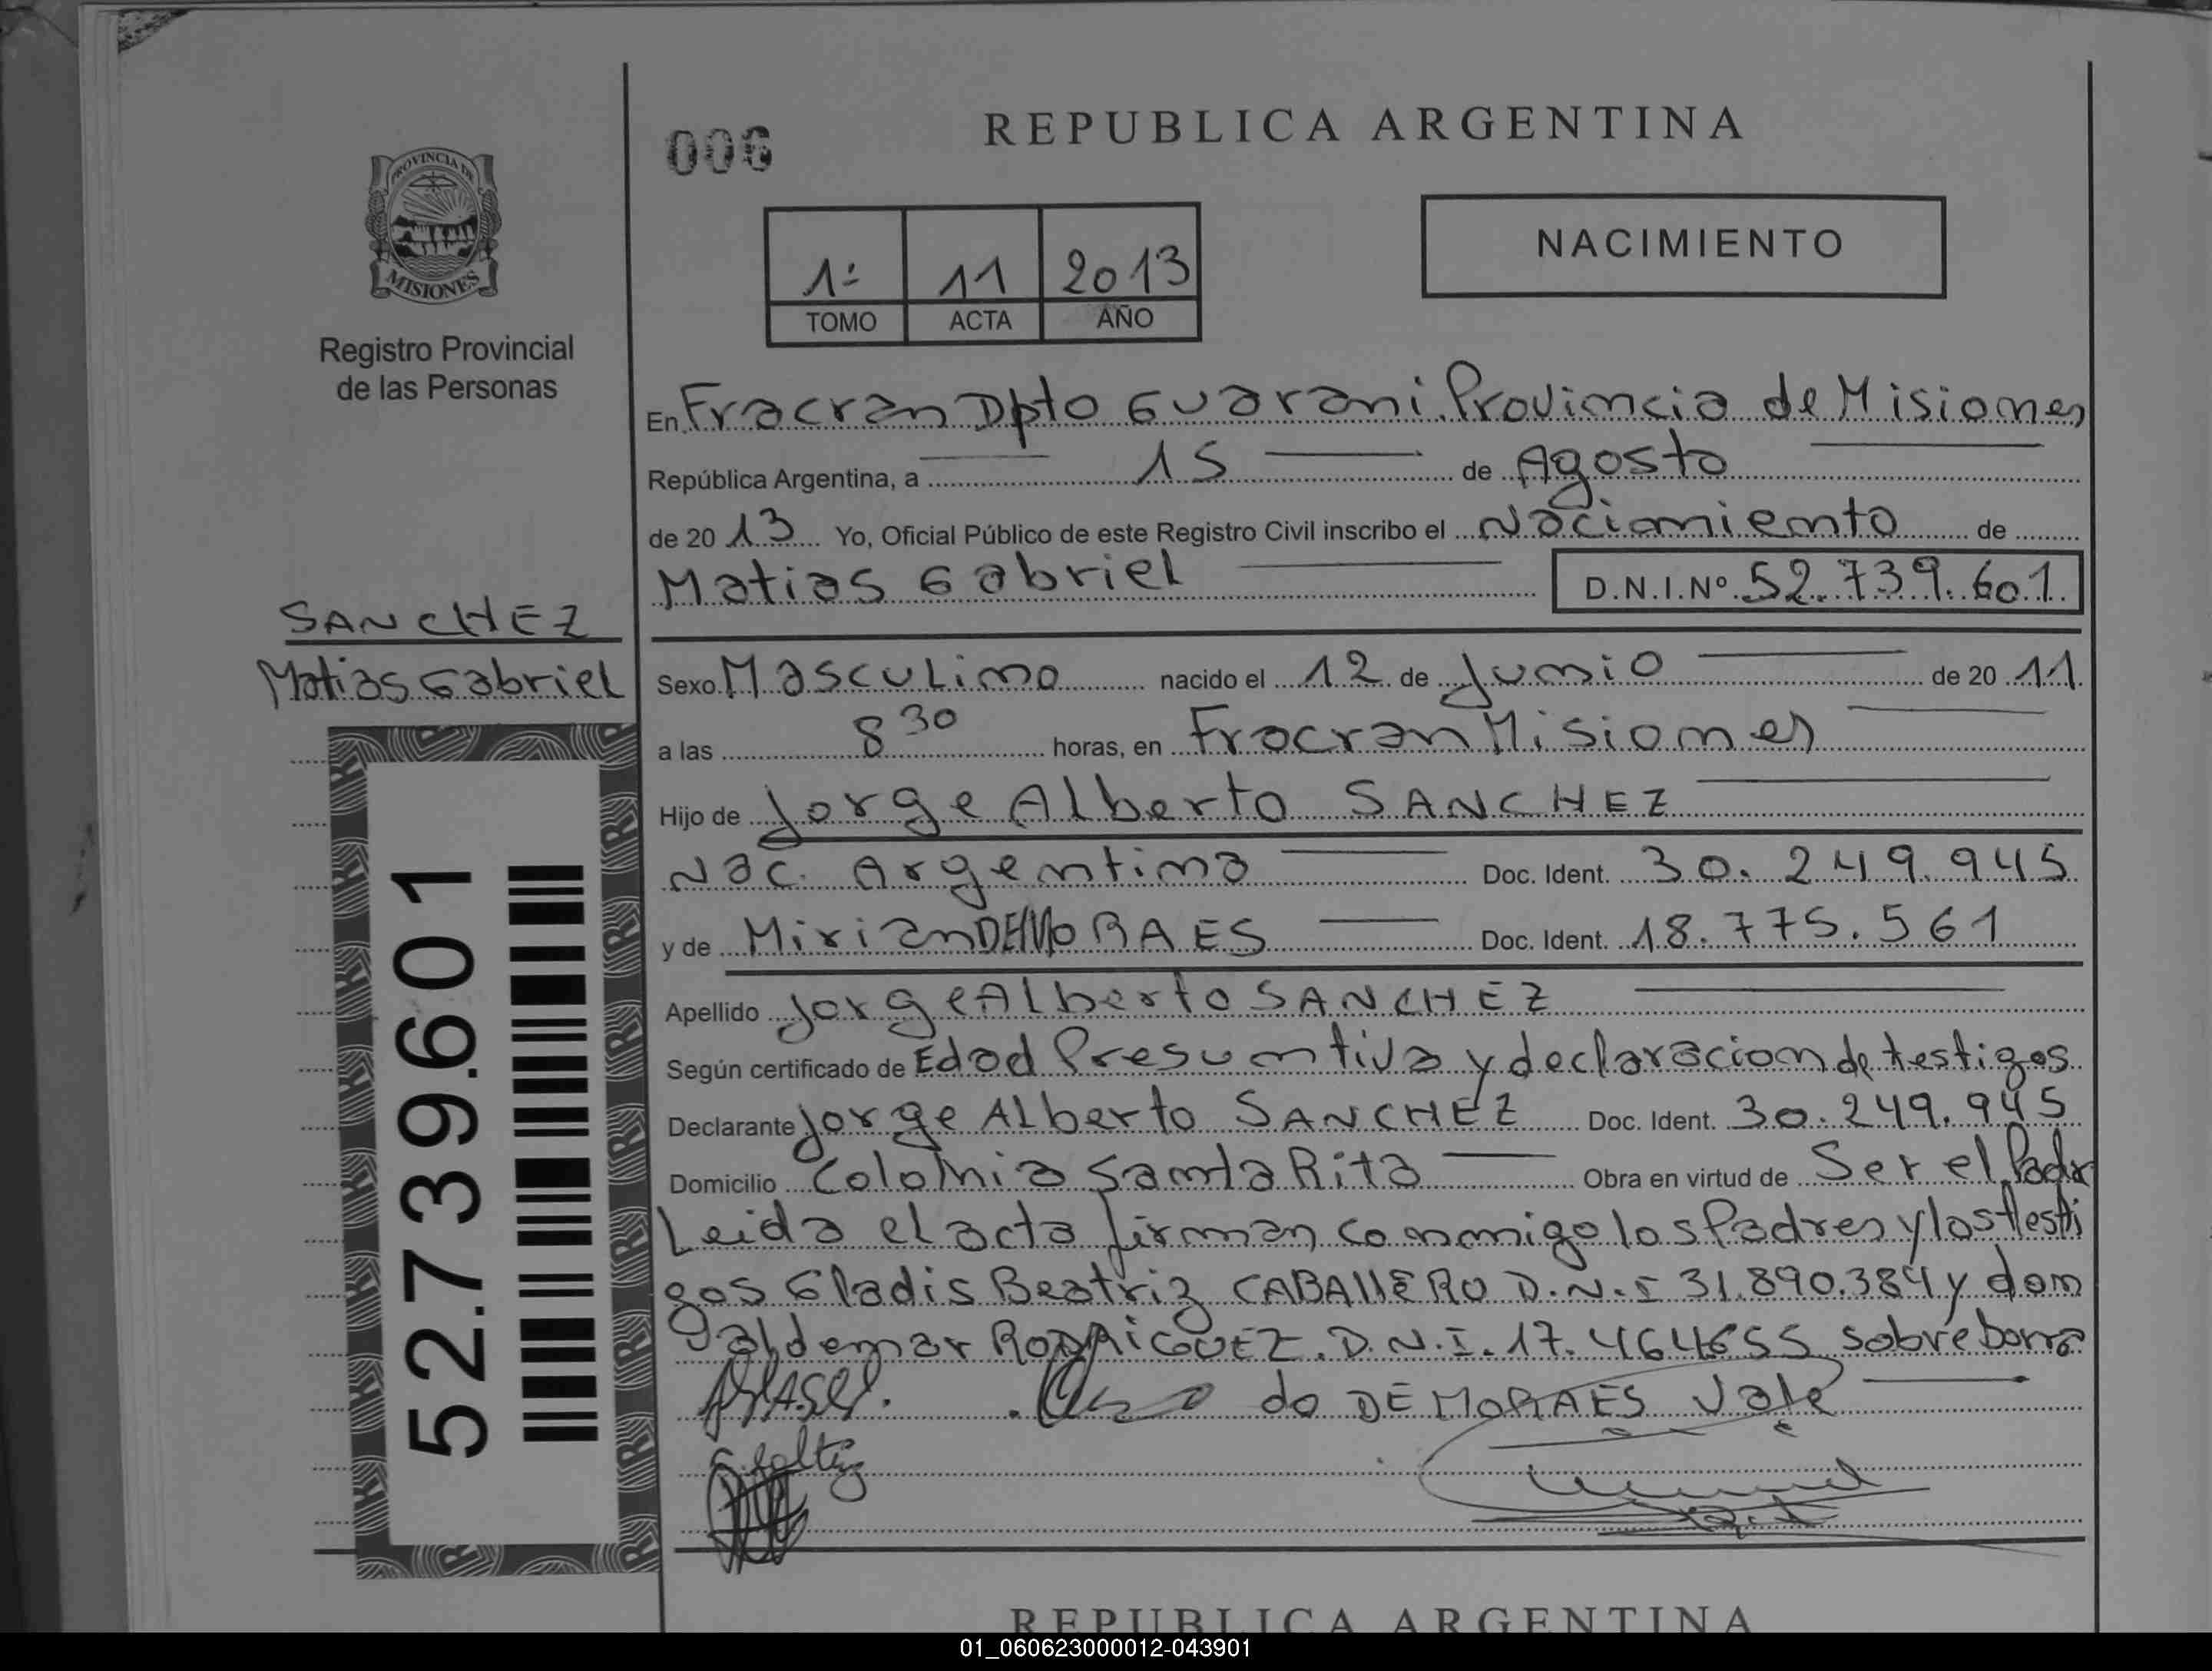 006
REPUBLICA ARGENTINA
PROVINCIA DE
MISIONES
Registro Provincial
de las Personas
1º 11 2013
TOMO ACTA AÑO
NACIMIENTO
En Fracran Dpto Guarani Provincia de Misiones
República Argentina, a 15 de Agosto
de 20 13 Yo, Oficial Público de este Registro Civil inscribo el Nacimiento de
Matias Gabriel D.N.I.Nº 52.739.601
SANCHEZ
Matias Gabriel
Sexo Masculino nacido el 12 de Junio de 20 11
a las 8 30 horas, en Fracran Misiones
Hijo de Jorge Alberto SANCHEZ
Nac. Argentina Doc. Ident. 30.249.945
y de Mirian DE MORAES Doc. Ident. 18.775.561
Apellido Jorge Alberto SANCHEZ
Según certificado de Edad Presuntiva y declaracion de testigos
Declarante Jorge Alberto SANCHEZ Doc. Ident. 30.249.945
Domicilio Colonia Santa Rita Obra en virtud de Ser el Padre
Leida el acta firman conmigo los Padres y los testi
gos Gladis Beatriz CABALLERO D.N.I 31.890.384 y don
Valdemar RODRIGUEZ. D.N.I. 17.464655 sobre borra
do DE MORAES Vale
52.739.601
REPUBLICA ARGENTINA
01_060623000012-043901